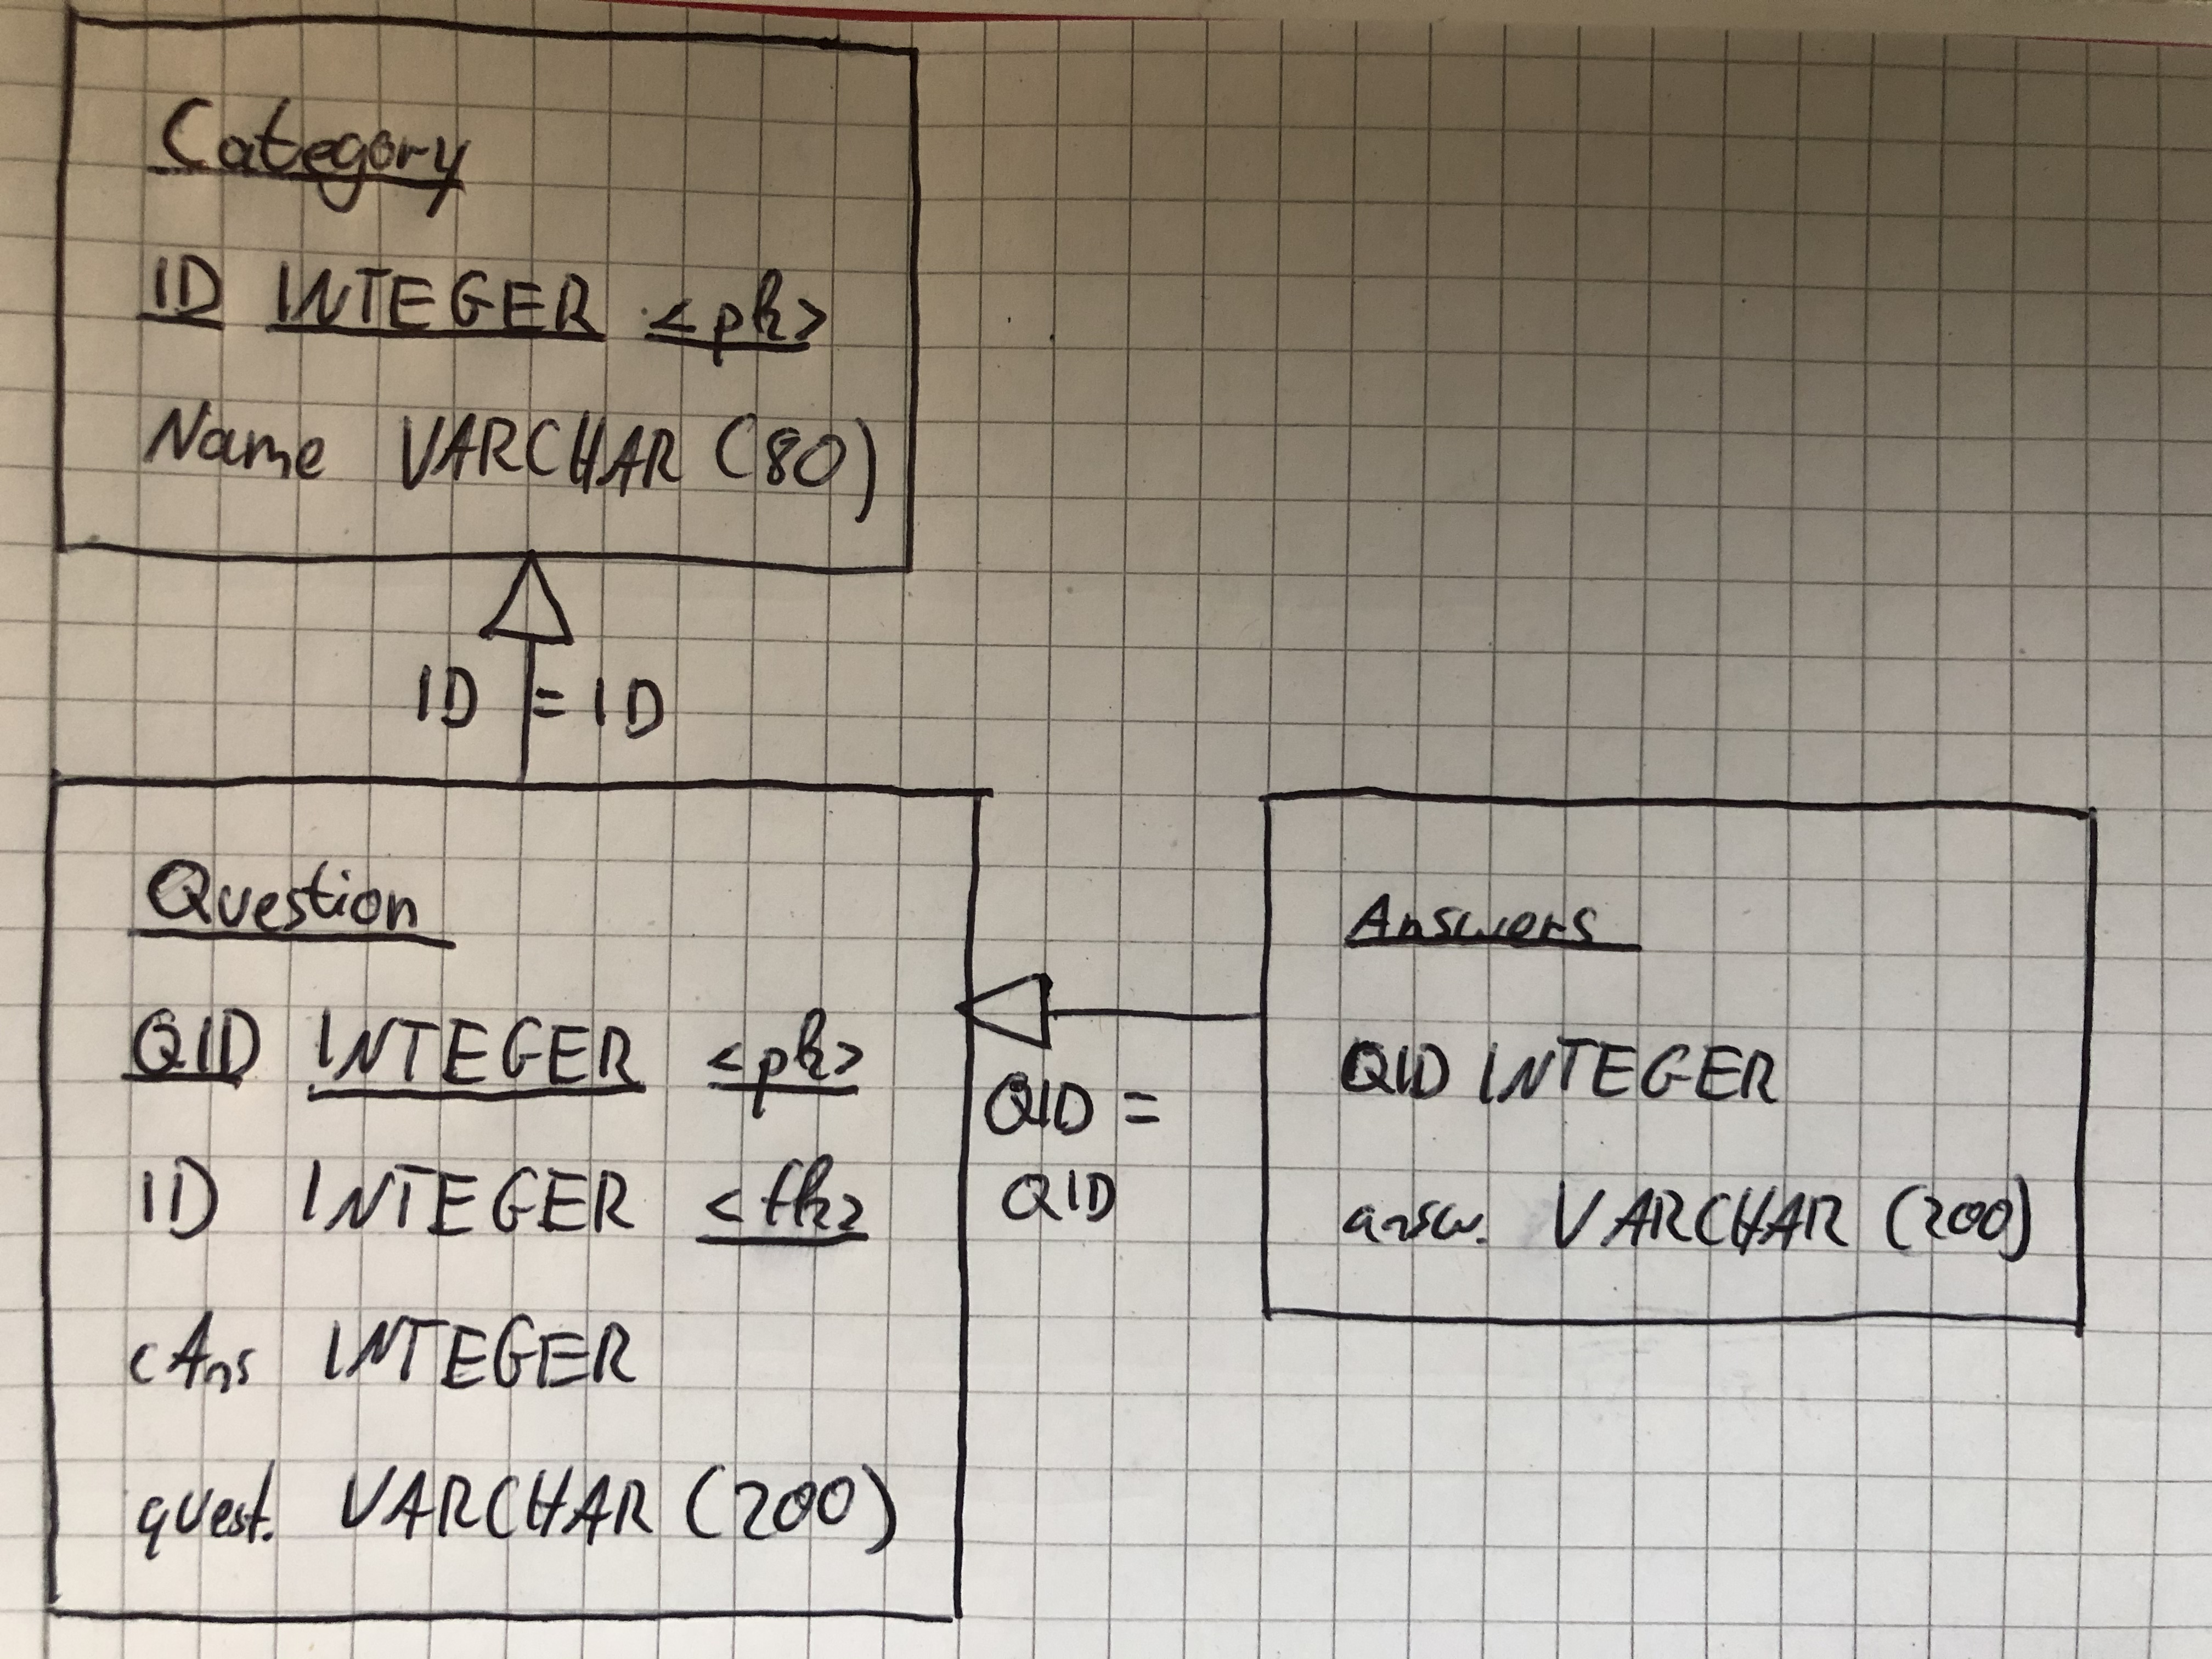 Category
ID INTEGER <pk>
Name VARCHAR (80)
ID = ID
Question
QID INTEGER <pk>
ID INTEGER <fk>
cAns INTEGER
quest. VARCHAR (200)
QID =
QID
Answers
QID INTEGER
answ. VARCHAR (200)